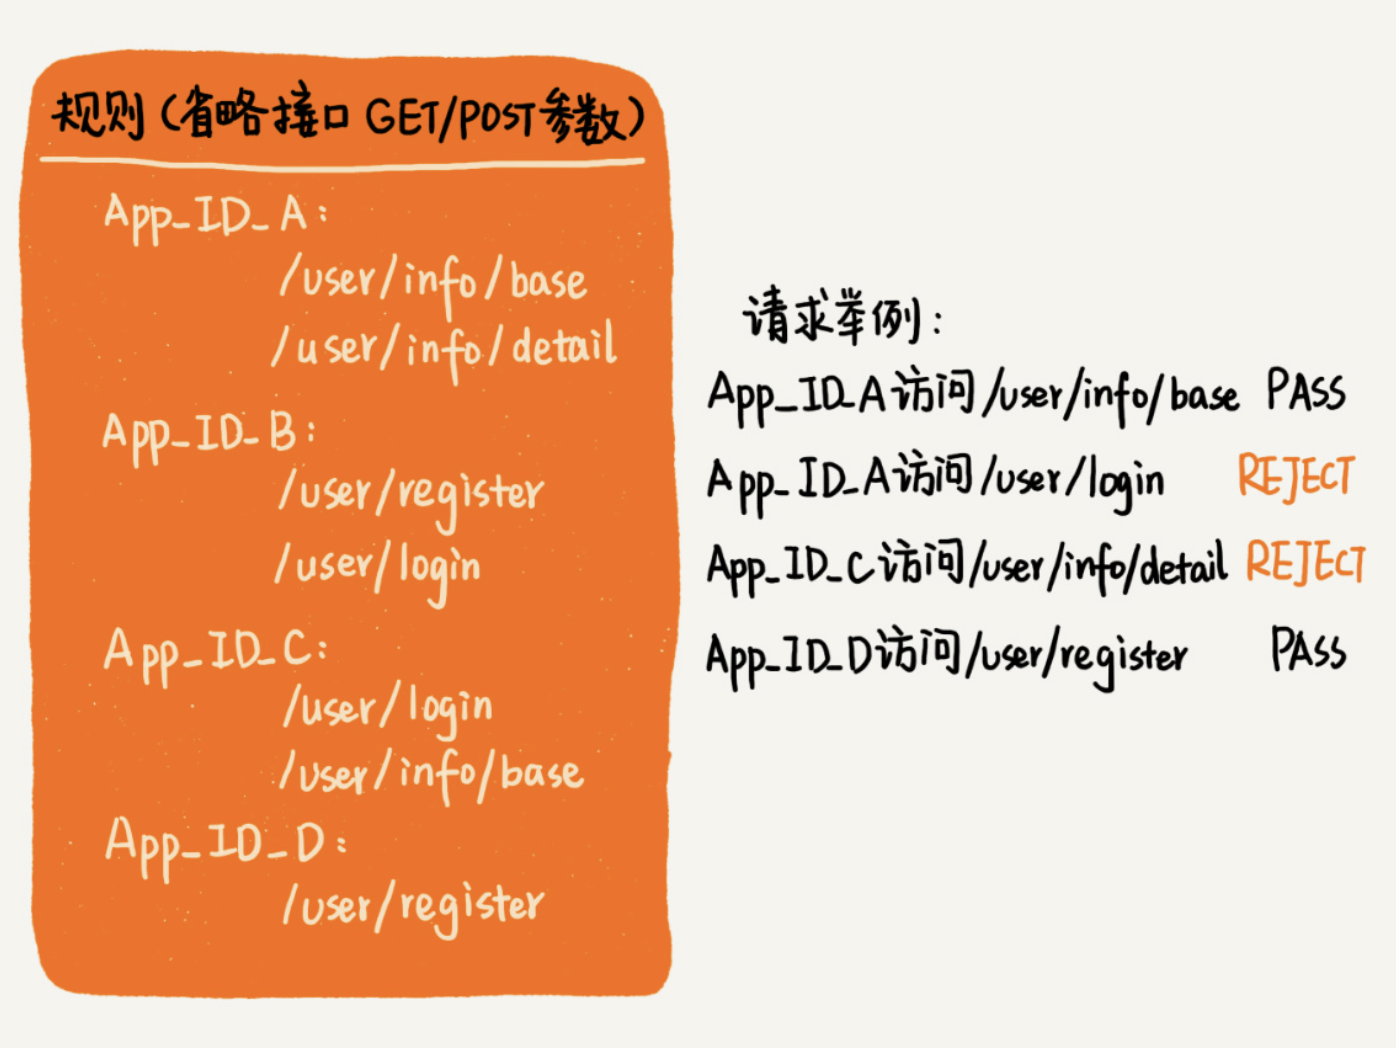 规则（省略接口 GET/POST参数）
App_ID_A:
/user/info/base
/user/info/detail
App_ID_B:
/user/register
/user/login
App_ID_C:
/user/login
/user/info/base
App_ID_D:
/user/register
请求举例:
App_ID_A访问/user/info/base PASS
App_ID_A访问/user/login REJECT
App_ID_C访问/user/info/detail REJECT
App_ID_D访问/user/register PASS